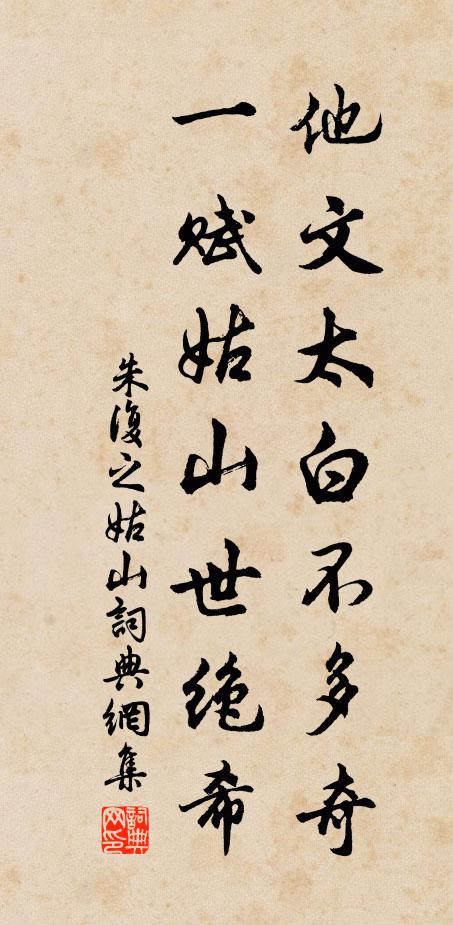 他文太白不多奇
一赋姑山世绝希
朱復之姑山詞典網集
詞典网印